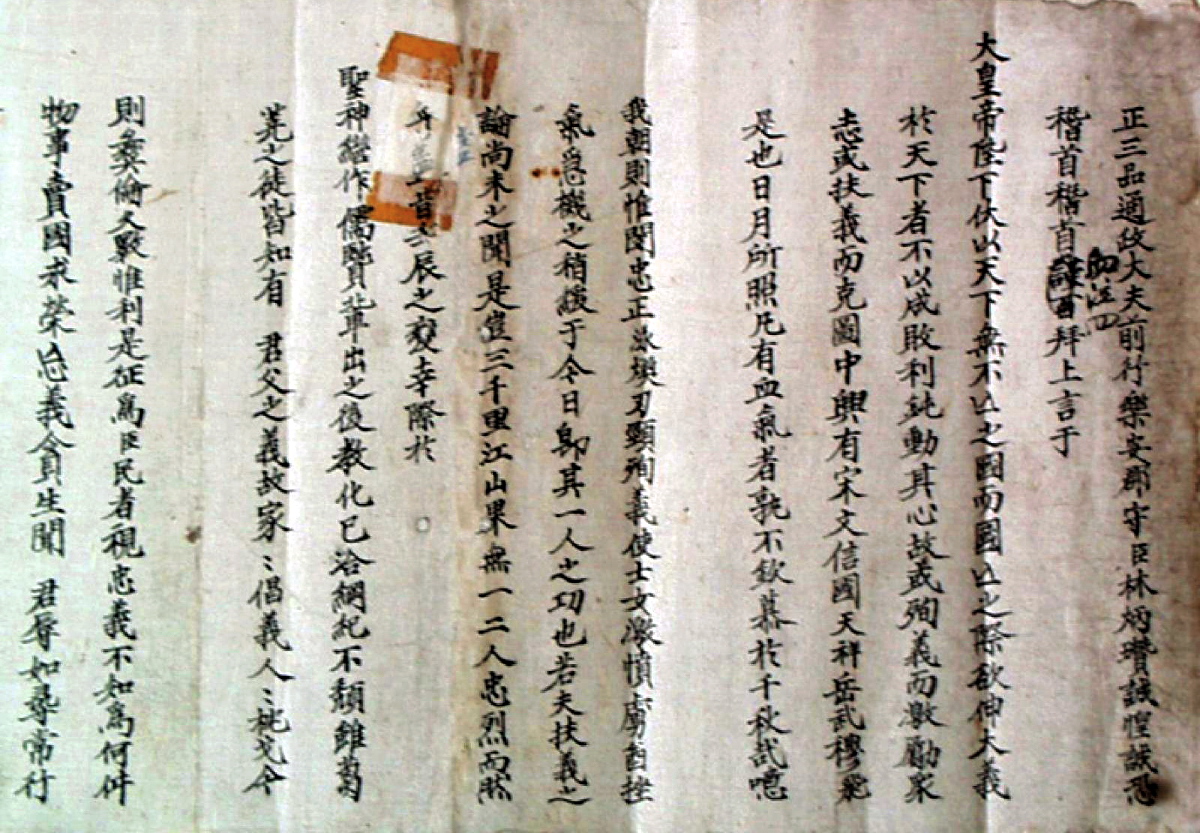 正三品通政大夫前行樂安郡守臣林炳瓚誠惶誠恐
稽首稽首謹百拜上言于
大皇帝陛下伏以天下無不亡之國而國亡之際欲伸大義
於天下者不以成敗利鈍動其心故或殉義而激勵衆
志或扶義而克圖中興有宋文信國天祥岳武穆飛
是也日月所照凡有血氣者孰不欽慕於千秋哉噫
我朝則惟閔忠正泳煥刃頸殉義使士女激憤虜酋挫
氣爲機之稍緩于今日即其一人之功也若夫扶義之
論尚未之聞是豈三千里江山果無一二人忠烈而然
辰之變幸際於
聖神繼作儒賢輩出之後敎化已洽綱紀不頹雖蒭
蕘之徒皆知有 君父之義故家〻倡義人〻枕戈今
則彜倫乂斁惟利是征爲臣民者視忠義不知爲何件
物事賣國求榮忘義含貟生聞 君辱如尋常行